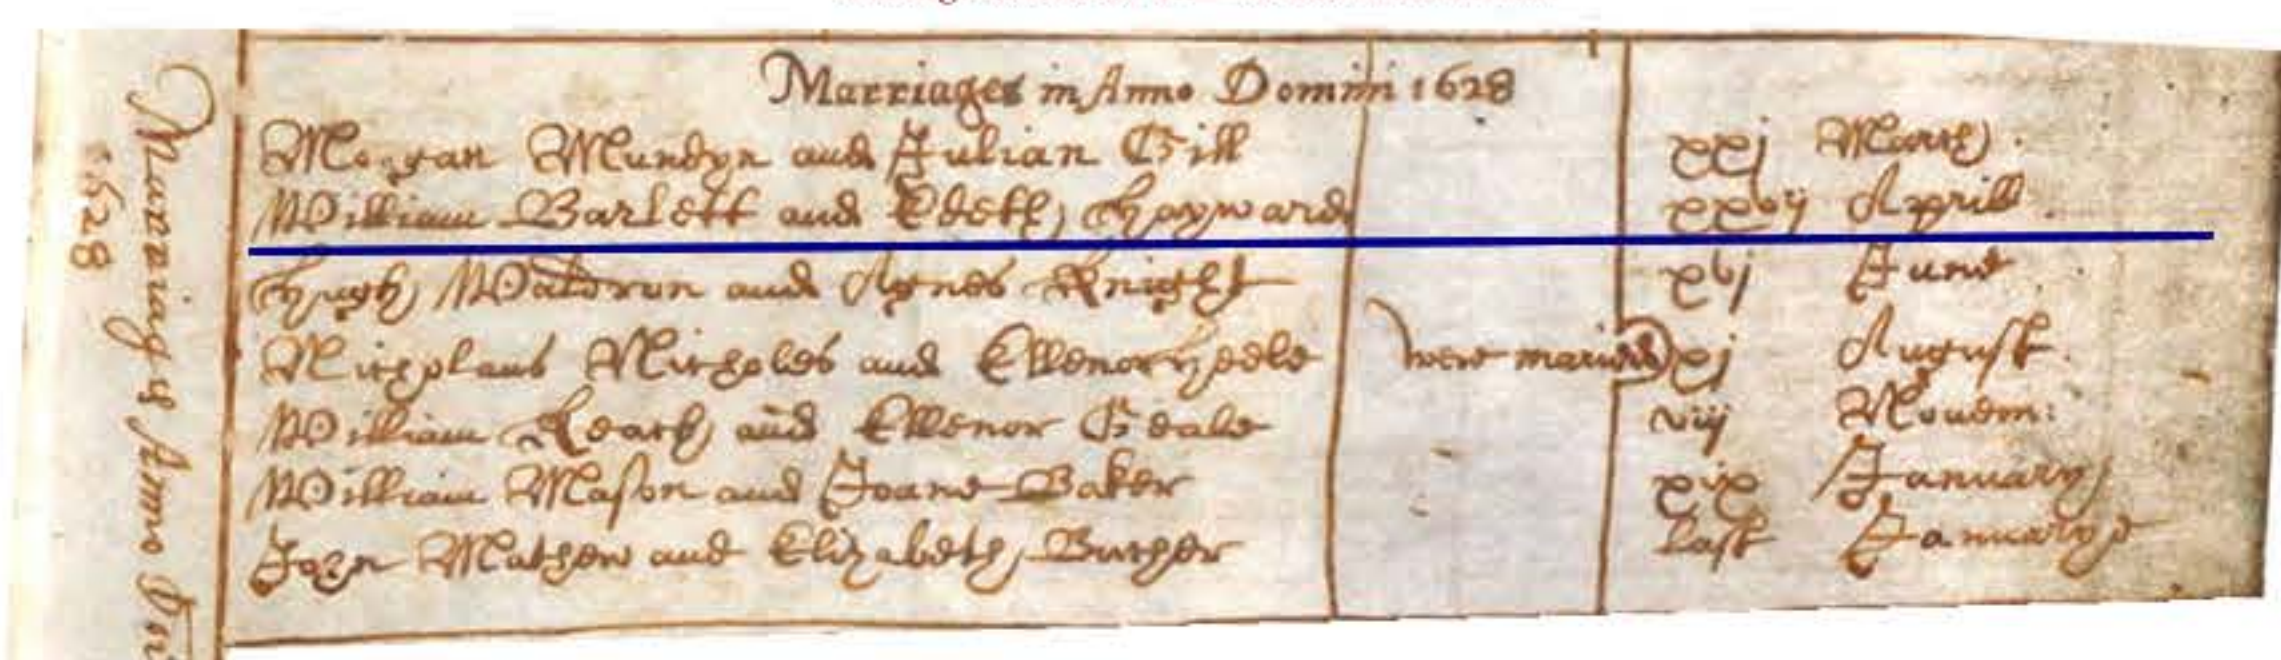 Marriages in Anno Domini 1628
Morgan Mundyn and Julian Gill xxj March
William Bartett and Edeth Hayward xxvij Aprill
Hugh Waldron and Agnes Knight xvj June
Nicholaus Nicholes and Ellenor were maried xj August
William Keach and Ellenor Geale viij Novem:
William Mason and Joane Baker xix January
John Mathew and Elizabeth Bucher last Januarye
Marriag Anno
1628